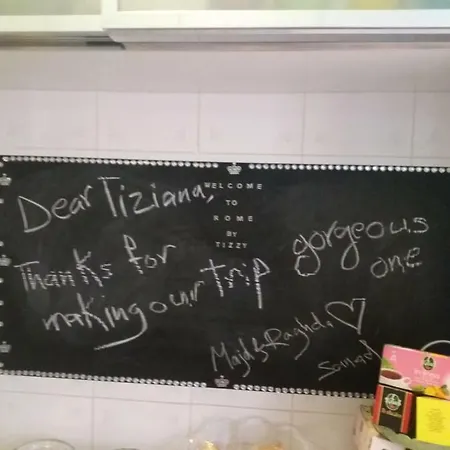 Dear Tiziana,
Thanks for
making our trip
gorgeous
one
WELCOME
TO
ROME
BY
TIZZY
Majd & Raghda